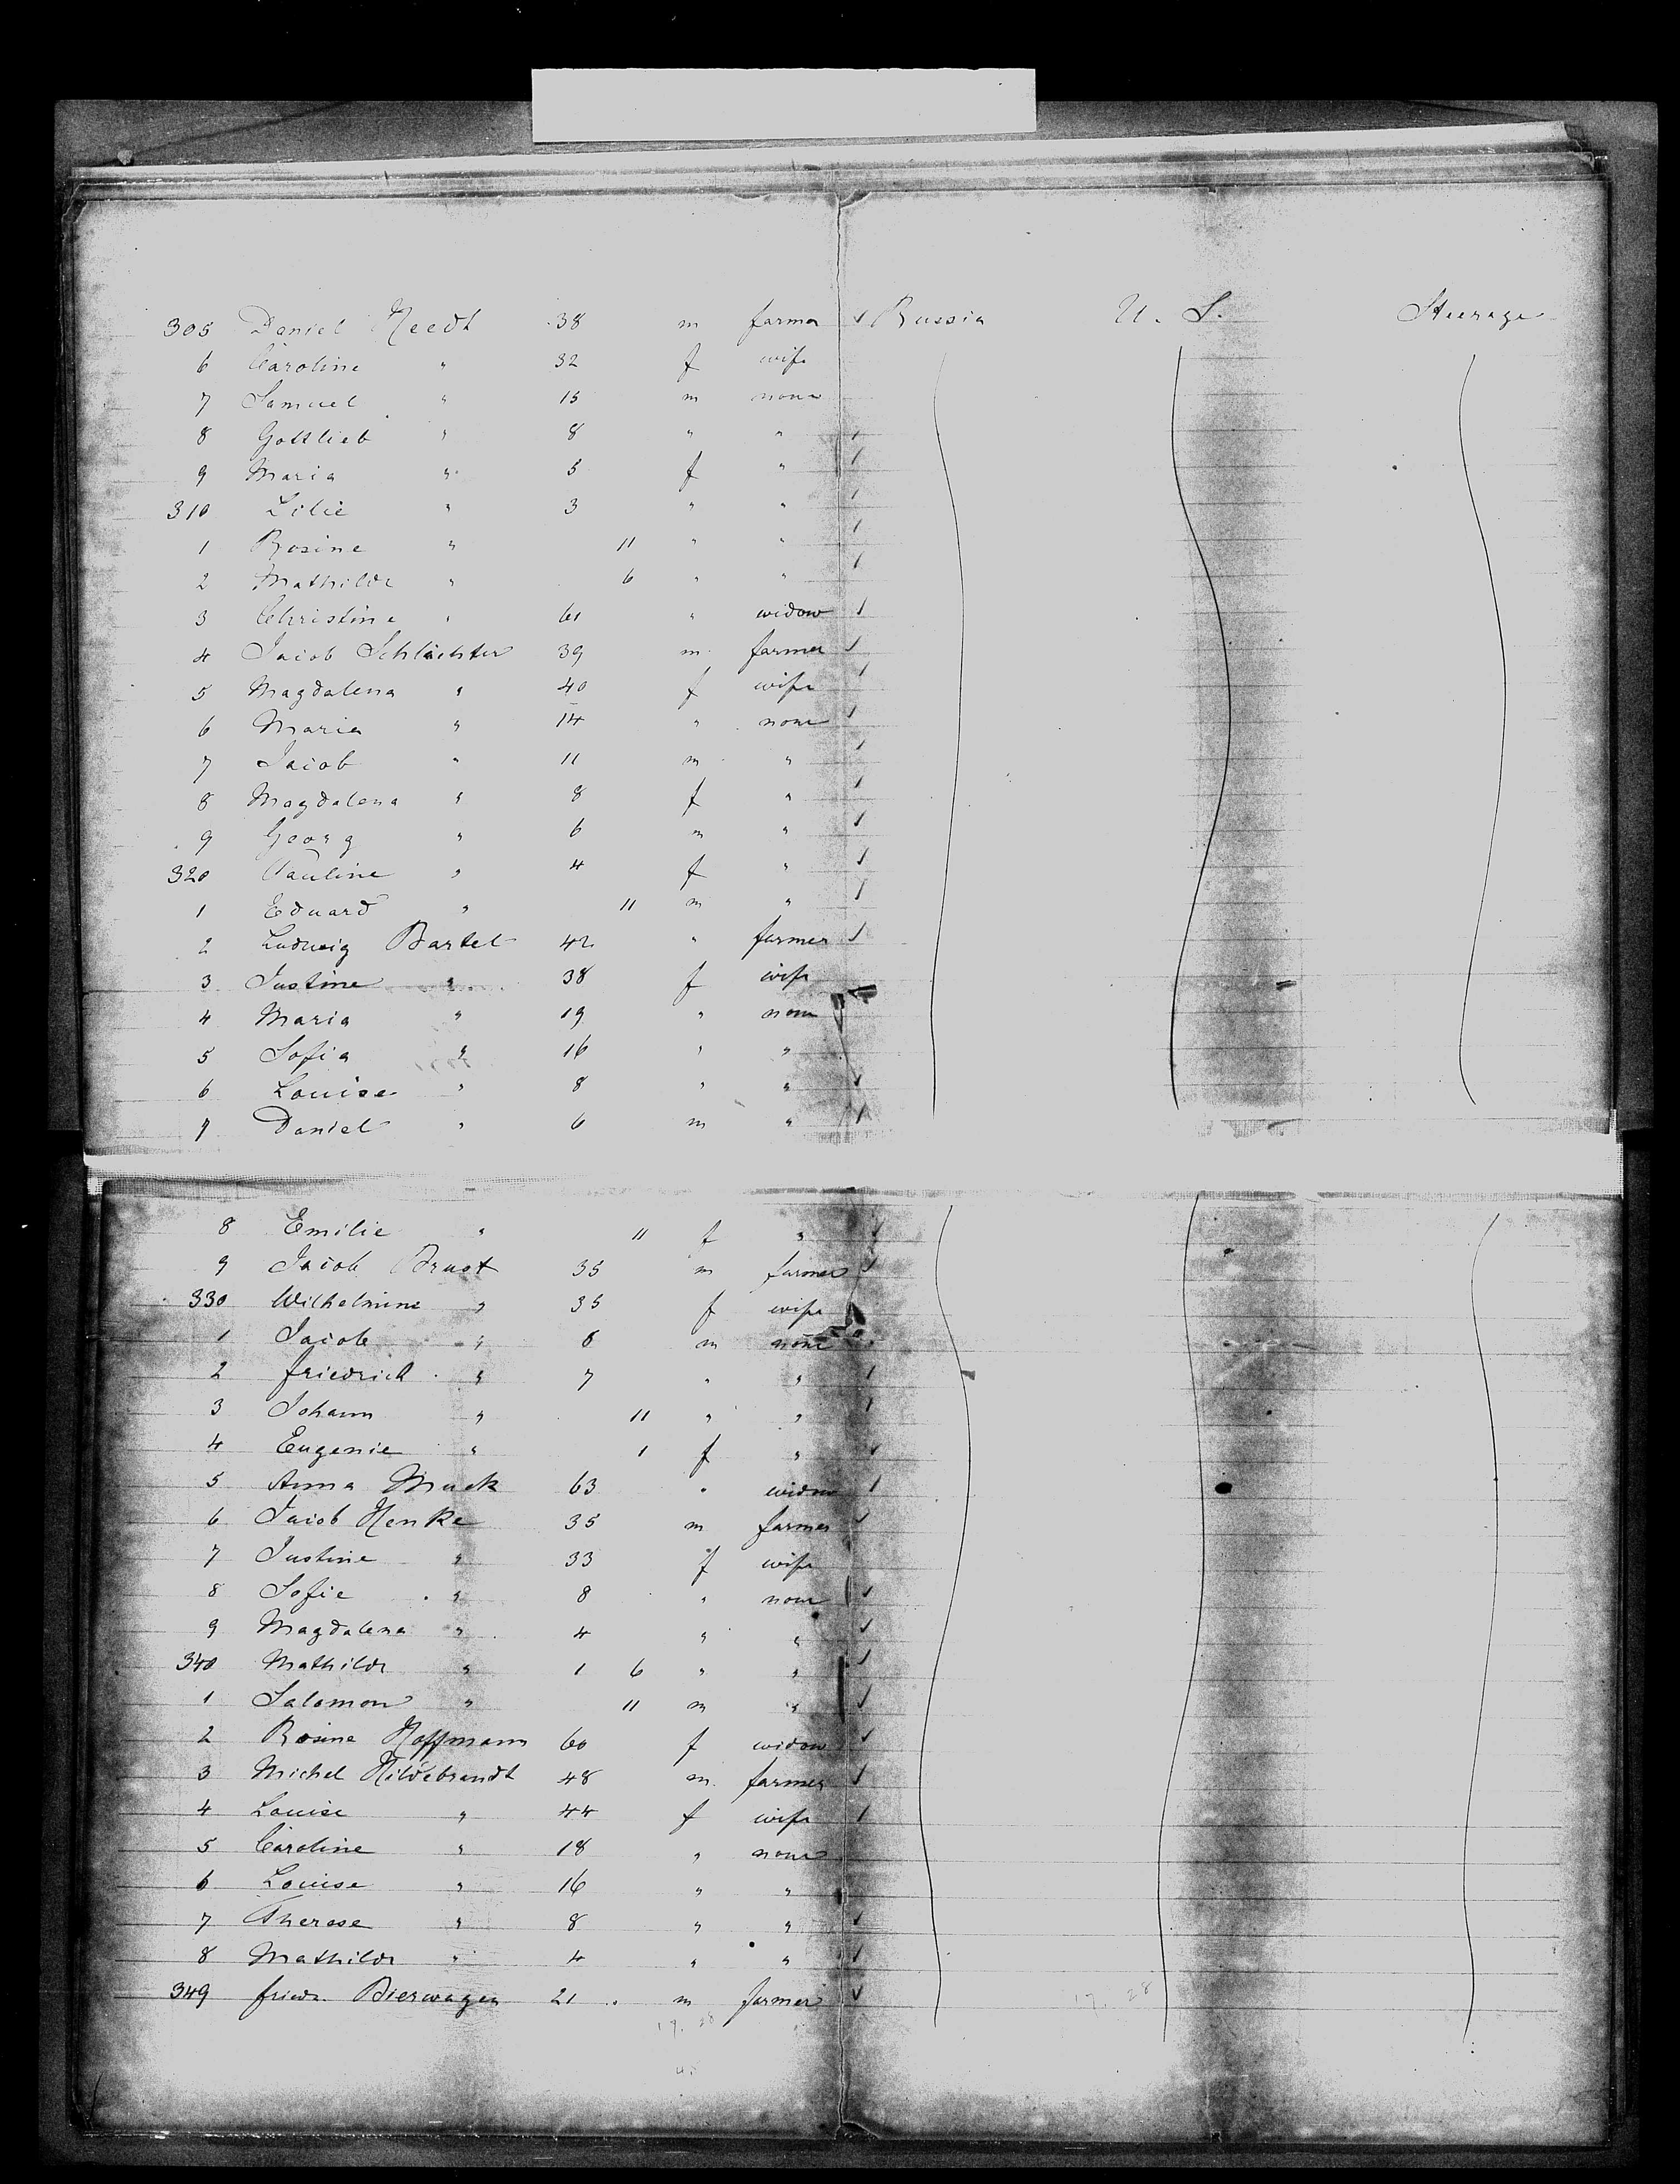 305 Daniel Heedt 38 m farmer ✓ Russia U. S. Steerage
6 Caroline " 32 f wife
7 Samuel " 15 m none
8 Gottlieb " 8 " " ✓
9 Maria " 5 f " ✓
310 Lilie " 3 " " ✓
1 Rosine " 11 " " ✓
2 Mathilde " 6 " " ✓
3 Christine " 61 " widow ✓
4 Jacob Schlächter 39 m farmer ✓
5 Magdalena " 40 f wife ✓
6 Maria " 14 " none ✓
7 Jacob " 11 m " ✓
8 Magdalena " 8 f " ✓
9 Georg " 6 m " ✓
320 Pauline " 4 f " ✓
1 Eduard " 11 m " ✓
2 Ludwig Bartel 42 " farmer ✓
3 Justine " 38 f wife
4 Maria " 19 " none
5 Sofia " 16 " "
6 Louise " 8 " " ✓
7 Daniel " 6 m " ✓
8 Emilie " 11 f " ✓
9 Jacob Brust 35 m farmer ✓
330 Wilhelmine " 35 f wife
1 Jacob " 8 m none
2 friedrich " 7 " " ✓
3 Johann " 11 " " ✓
4 Eugenie " 1 f " ✓
5 Anna Muck 63 " widow ✓
6 Jacob Henke 35 m farmer ✓
7 Justine " 33 f wife
8 Sofie " 8 " none ✓
9 Magdalena " 4 " " ✓
340 Mathilde " 1 6 " " ✓
1 Salomon " 11 m " ✓
2 Rosine Hoffmann 60 f widow ✓
3 Michel Hildebrandt 48 m farmer ✓
4 Louise " 44 f wife ✓
5 Caroline " 18 " none
6 Louise " 16 " "
7 Therese " 8 " " ✓
8 Mathilde " 4 " " ✓
349 friedr. Bierwagen 21 m farmer ✓
17. 28